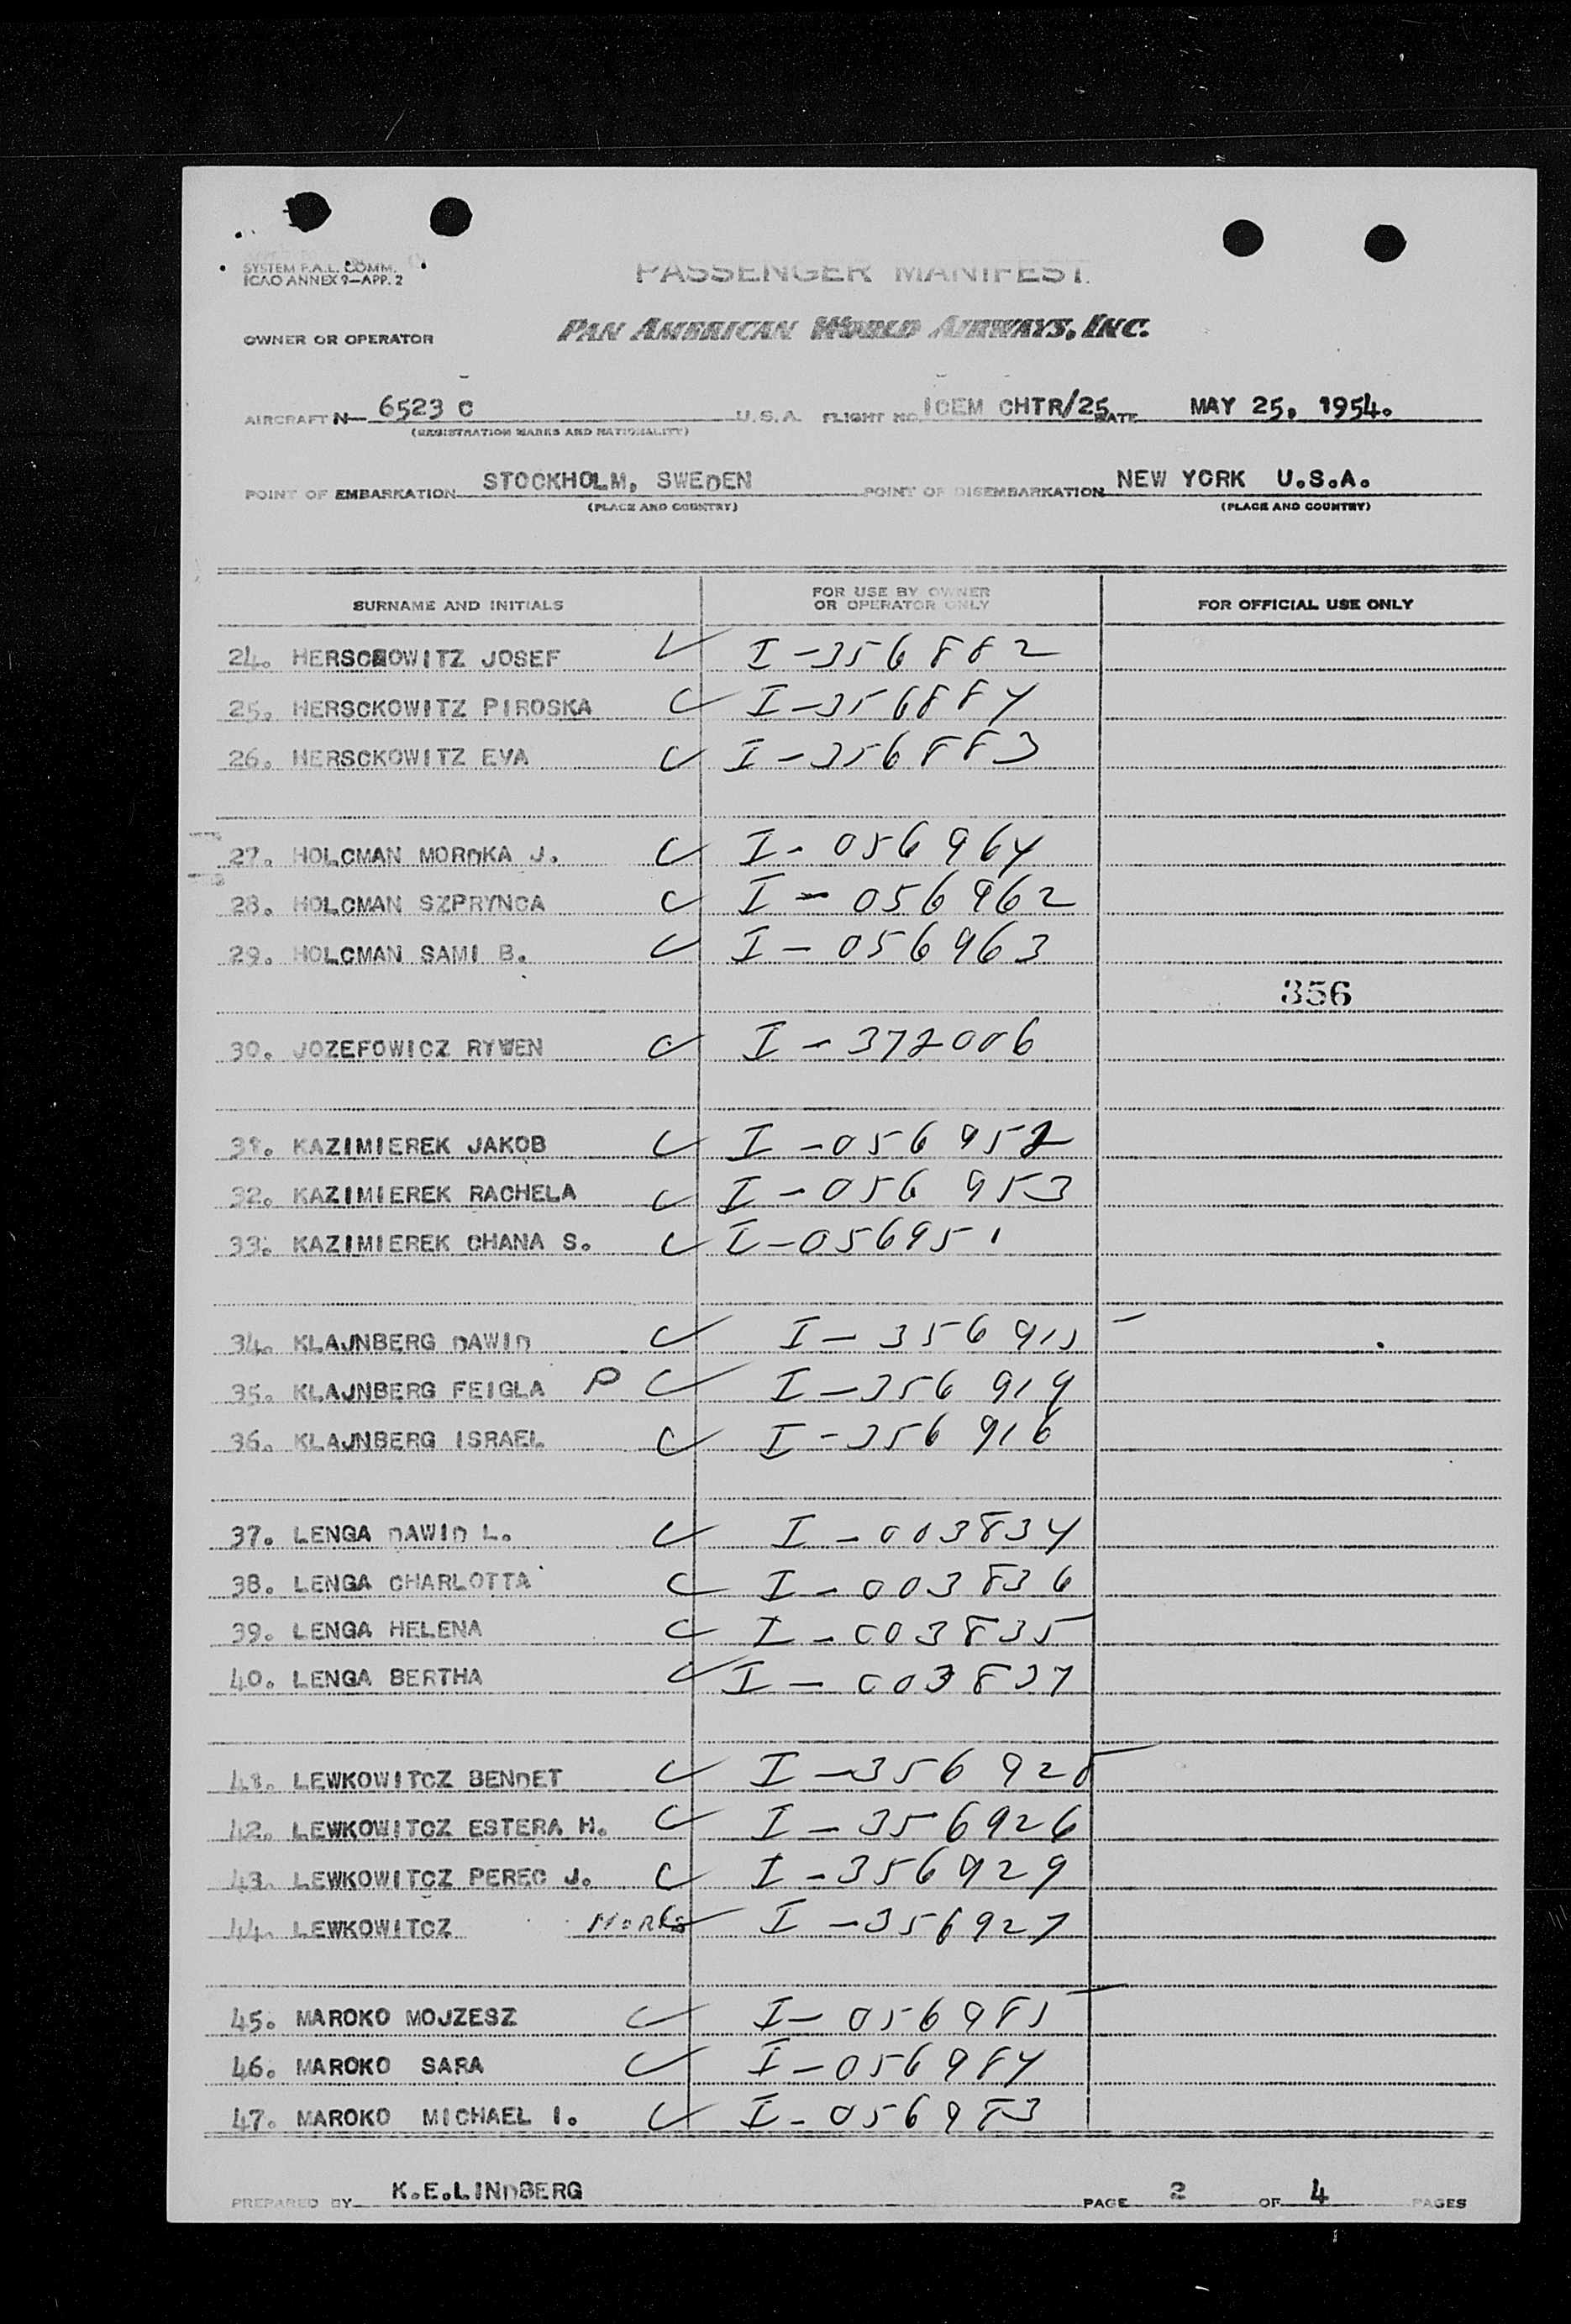 SYSTEM F.A.L. COMM.
ICAO ANNEX 9—APP. 2
PASSENGER MANIFEST.
OWNER OR OPERATOR PAN AMERICAN WORLD AIRWAYS, INC.
AIRCRAFT N— 6523 C U.S.A. FLIGHT NO. ICEM CHTR/25 DATE MAY 25, 1954.
(REGISTRATION MARKS AND NATIONALITY)
POINT OF EMBARKATION STOCKHOLM, SWEDEN POINT OF DISEMBARKATION NEW YORK U.S.A.
(PLACE AND COUNTRY) (PLACE AND COUNTRY)
SURNAME AND INITIALS FOR USE BY OWNER OR OPERATOR ONLY FOR OFFICIAL USE ONLY
24. HERSCKOWITZ JOSEF ✓ I-356882
25. HERSCKOWITZ PIROSKA ✓ I-356884
26. HERSCKOWITZ EVA ✓ I-356883
27. HOLCMAN MORDKA J. ✓ I-056964
28. HOLCMAN SZPRYNCA ✓ I-056962
29. HOLCMAN SAMI B. ✓ I-056963
356
30. JOZEFOWICZ RYWEN ✓ I-372006
31. KAZIMIEREK JAKOB ✓ I-056952
32. KAZIMIEREK RACHELA ✓ I-056953
33. KAZIMIEREK CHANA S. ✓ I-056951
34. KLAJNBERG DAWID ✓ I-356915
35. KLAJNBERG FEIGLA P ✓ I-356919
36. KLAJNBERG ISRAEL ✓ I-356916
37. LENGA DAWID L. ✓ I-003834
38. LENGA CHARLOTTA ✓ I-003836
39. LENGA HELENA ✓ I-003835
40. LENGA BERTHA ✓ I-003837
41. LEWKOWITCZ BENDET ✓ I-356925
42. LEWKOWITCZ ESTERA H. ✓ I-356926
43. LEWKOWITCZ PEREC J. ✓ I-356929
44. LEWKOWITCZ ✓ I-356927
45. MAROKO MOJZESZ ✓ I-056985
46. MAROKO SARA ✓ I-056984
47. MAROKO MICHAEL I. ✓ I-056983
PREPARED BY K.E.LINDBERG PAGE 2 OF 4 PAGES